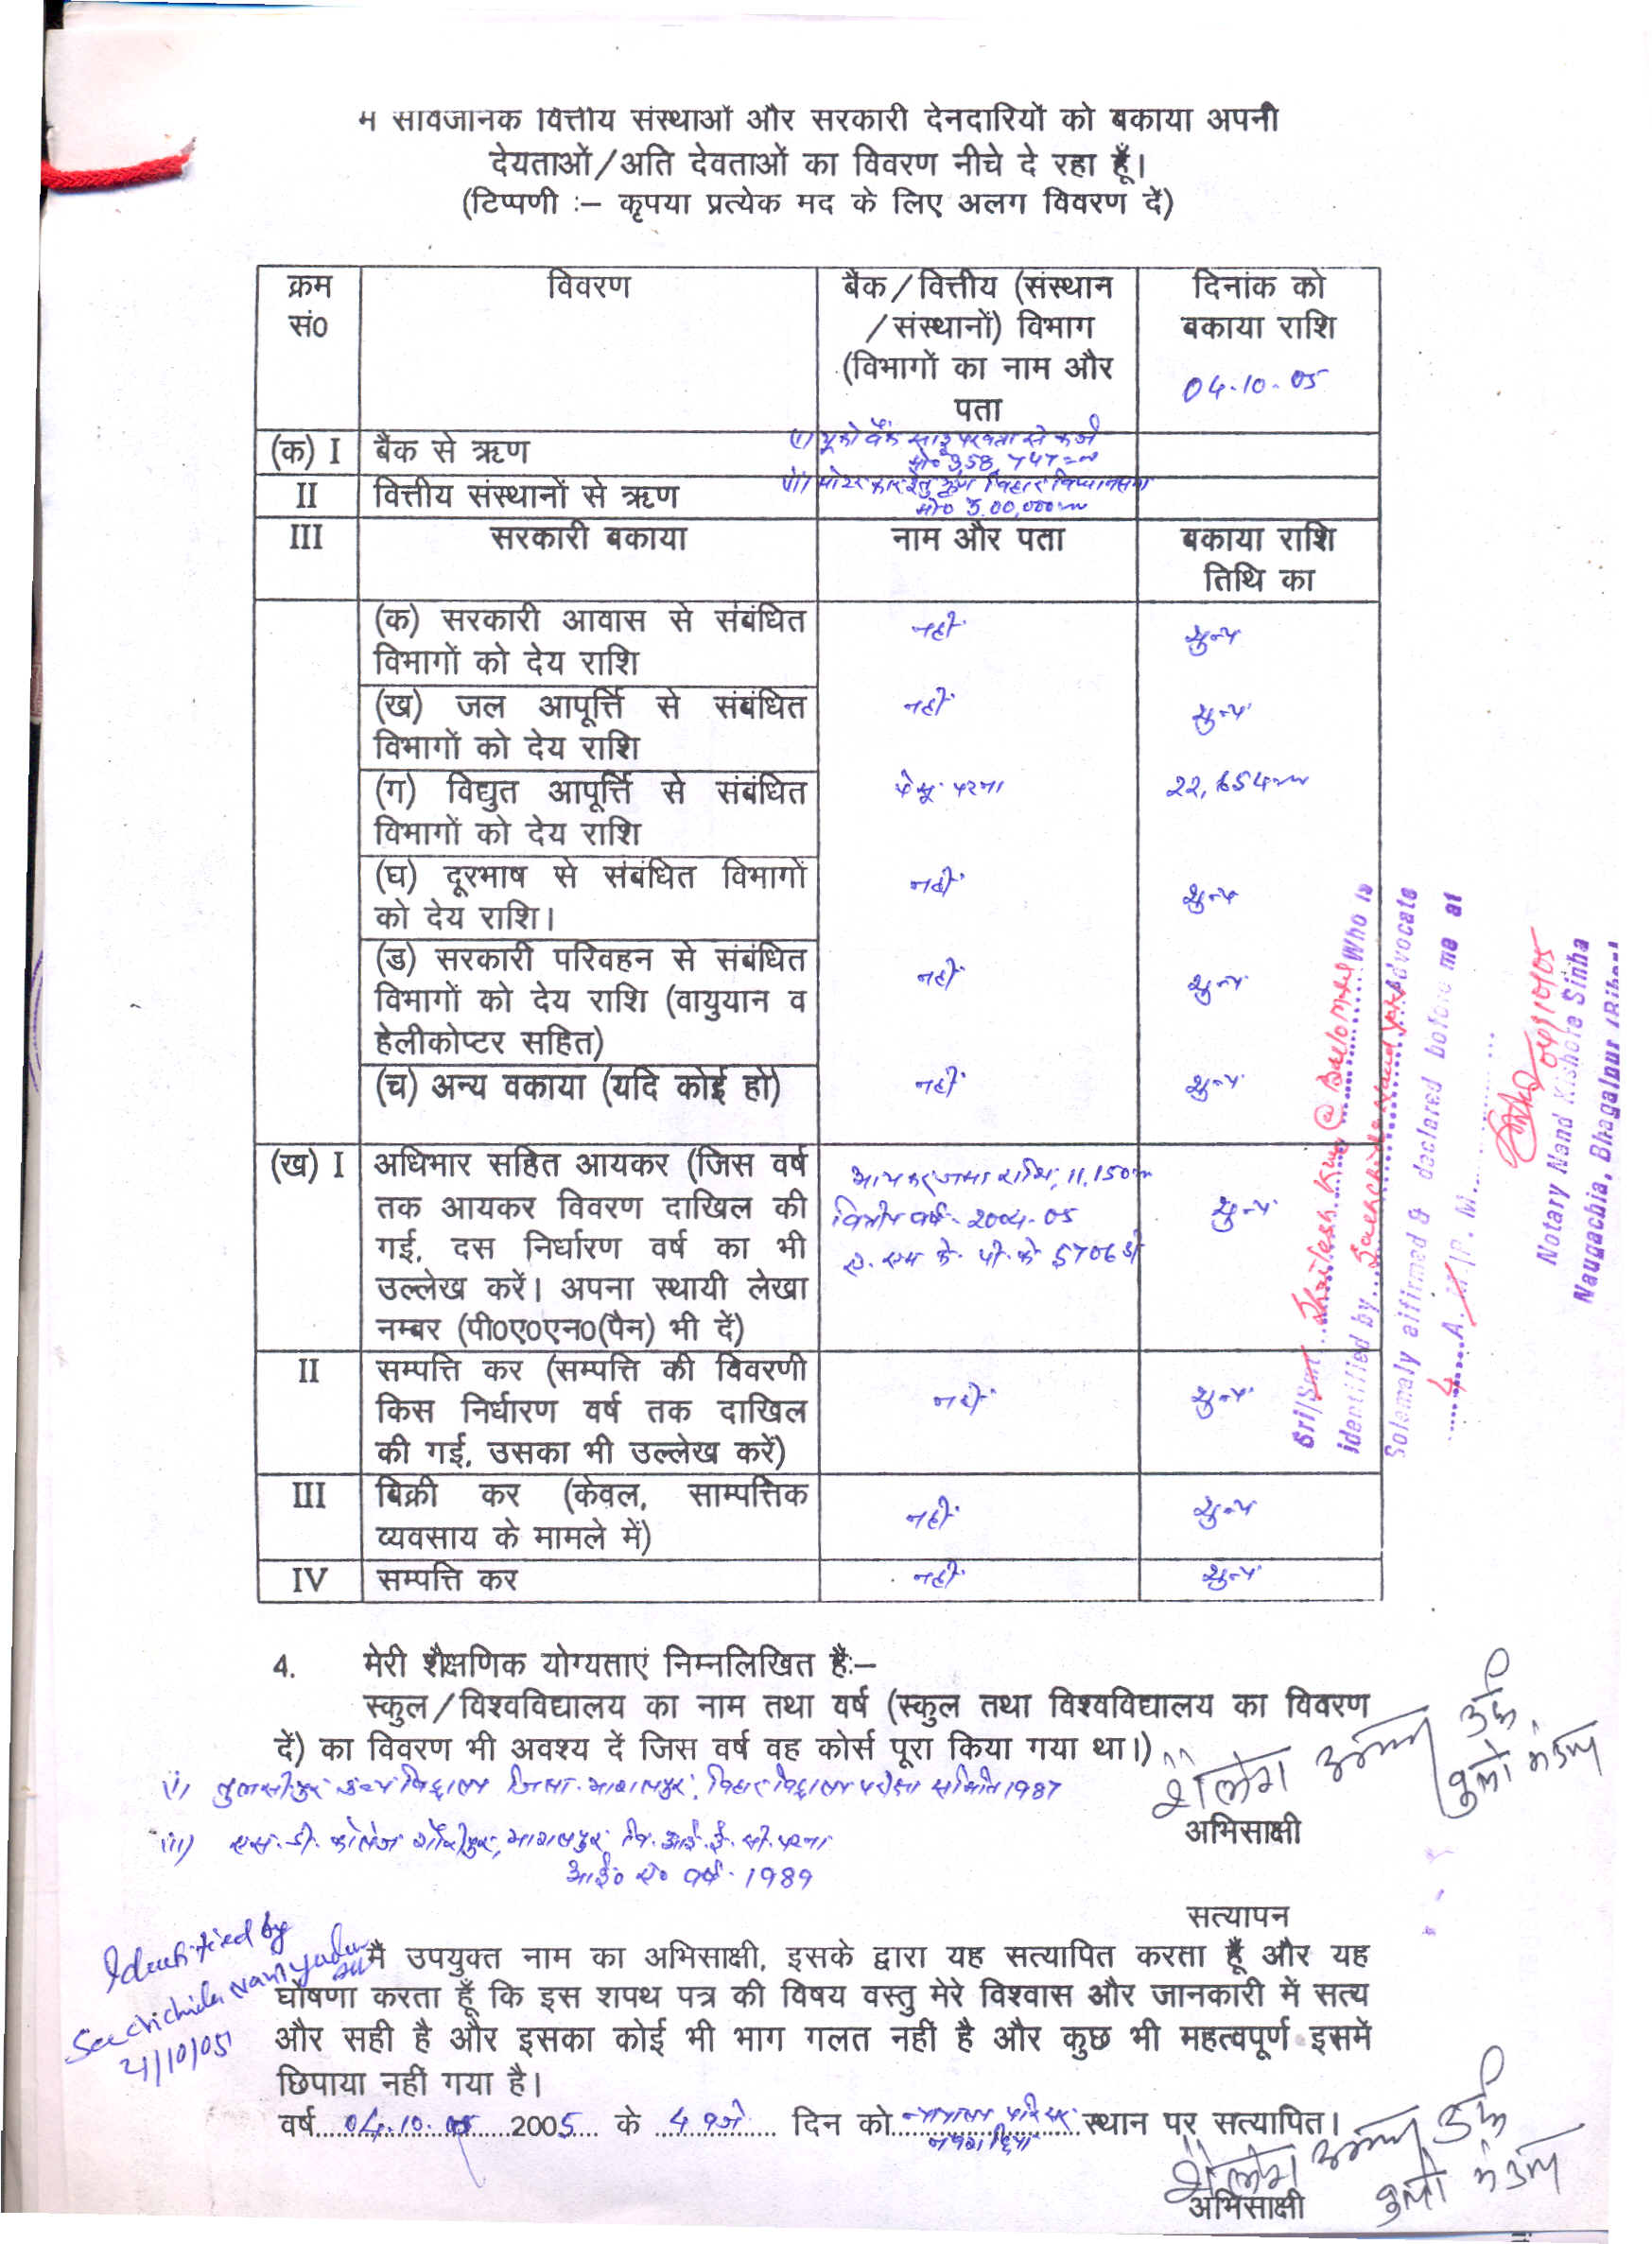 मैं सार्वजनिक वित्तीय संस्थाओं और सरकारी देनदारियों को बकाया अपनी
देयताओं/अति देवताओं का विवरण नीचे दे रहा हूँ।
(टिप्पणी :– कृपया प्रत्येक मद के लिए अलग विवरण दें)
क्रम सं0
विवरण
बैंक/वित्तीय (संस्थान
/संस्थानों) विभाग
(विभागों का नाम और
पता
दिनांक को
बकाया राशि
04.10.05
(क) I बैंक से ऋण
(i) यूको बैंक साहू परबत्ता से कर्ज
मो० 3,58,747=00
II वित्तीय संस्थानों से ऋण
(ii) मोटर कार हेतु ऋण बिहार विधानसभा
मो० 3,00,000=00
III सरकारी बकाया नाम और पता बकाया राशि
तिथि का
(क) सरकारी आवास से संबंधित
विभागों को देय राशि
नहीं शुन्य
(ख) जल आपूर्त्ति से संबंधित
विभागों को देय राशि
नहीं शुन्य
(ग) विद्युत आपूर्त्ति से संबंधित
विभागों को देय राशि
पेसू पटना 22,654=00
(घ) दूरभाष से संबंधित विभागों
को देय राशि।
नहीं शुन्य
(ड) सरकारी परिवहन से संबंधित
विभागों को देय राशि (वायुयान व
हेलीकोप्टर सहित)
नहीं शुन्य
(च) अन्य वकाया (यदि कोई हो)
नहीं शुन्य
(ख) I अधिभार सहित आयकर (जिस वर्ष
तक आयकर विवरण दाखिल की
गई, दस निर्धारण वर्ष का भी
उल्लेख करें। अपना स्थायी लेखा
नम्बर (पी0ए0एन0(पैन) भी दें)
आयकर जमा राशि, 11,150=00
वित्तीय वर्ष- 2004-05
ए. एम के. पी. के 5706 डी
शुन्य
II सम्पत्ति कर (सम्पत्ति की विवरणी
किस निर्धारण वर्ष तक दाखिल
की गई, उसका भी उल्लेख करें)
नहीं शुन्य
III बिक्री कर (केवल, साम्पत्तिक
व्यवसाय के मामले में)
नहीं शुन्य
IV सम्पत्ति कर
नहीं शुन्य
Sri/Smt Shailesh Kumar @ Bulo Mandal Who is
identified by Sachchida Nand Yadav Advocate
Solemaly affirmed & declared before me at
4 A.M/P.M.
04/10/05
Notary Nand Kishore Sinha
Naugachia, Bhagalpur (Bihar)
4. मेरी शैक्षणिक योग्यताएं निम्नलिखित हैं:–
स्कुल/विश्वविद्यालय का नाम तथा वर्ष (स्कुल तथा विश्वविद्यालय का विवरण
दें) का विवरण भी अवश्य दें जिस वर्ष वह कोर्स पूरा किया गया था।)
(i) तुलसीपुर उच्च विद्यालय जिला- भागलपुर, बिहार विद्यालय परीक्षा समिति 1987
(ii) एस. डी. कॉलेज गौरीपुर, भागलपुर बि. आई. ई. सी. पटना
आई० ए० वर्ष- 1989
शैलेश कुमार उर्फ
बुलो मंडल
अभिसाक्षी
सत्यापन
Identified by
Sachchida Nand Yadav
Adv
4/10/05
मैं उपयुक्त नाम का अभिसाक्षी, इसके द्वारा यह सत्यापित करता हूँ और यह
घोषणा करता हूँ कि इस शपथ पत्र की विषय वस्तु मेरे विश्वास और जानकारी में सत्य
और सही है और इसका कोई भी भाग गलत नहीं है और कुछ भी महत्वपूर्ण इसमें
छिपाया नहीं गया है।
वर्ष 04.10.05 2005 के 4 बजे दिन को न्यायालय परिसर स्थान पर सत्यापित।
नवगछिया
शैलेश कुमार उर्फ
बुलो मंडल
अभिसाक्षी